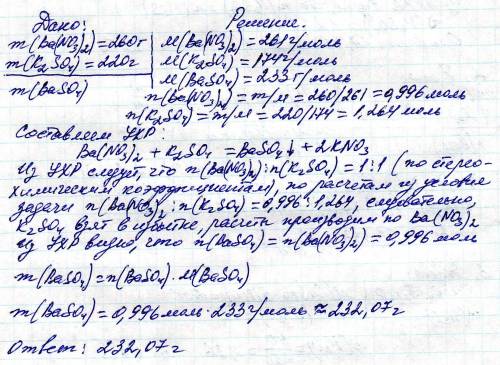 Дано:
Решение.
m(Ba(NO3)2)=260г
m(K2SO4)=220г
m(BaSO4)
M(Ba(NO3)2)=261г/моль
M(K2SO4)=174г/моль
M(BaSO4)=233г/моль
n(Ba(NO3)2)=m/M=260/261=0,996моль
n(K2SO4)=m/M=220/174=1,264моль
Составляем УХР:
Ba(NO3)2+K2SO4=BaSO4↓+2KNO3
Из УХР следует, что n(Ba(NO3)2):n(K2SO4)=1:1 (по стерео-
химическим коэффициентам), по расчетам из условия
задачи n(Ba(NO3)2):n(K2SO4)=0,996:1,264, следовательно,
K2SO4 взят в избытке, расчёты производим по Ba(NO3)2
из УХР видно, что n(BaSO4)=n(Ba(NO3)2)=0,996моль
m(BaSO4)=n(BaSO4)·M(BaSO4)
m(BaSO4)=0,996моль·233г/моль≈232,07г
Ответ: 232,07г